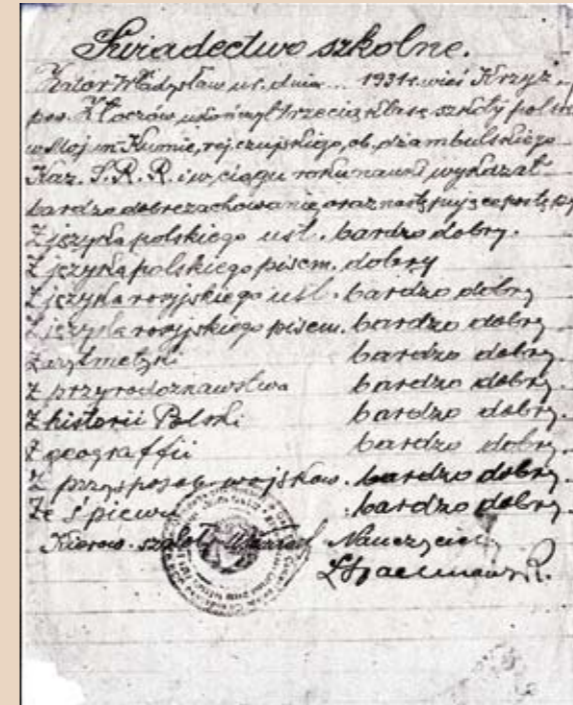 Świadectwo szkolne.
Kator Władysław ur. dnia ... 1931 r. wieś Krzyż
pow. Złoczów, ukończył trzecią klasę szkoły polsk
w Moj m. Kumie, rej. czujskiego, ob. dżambulskiego
Kaz. S. R. R. i w ciągu roku nauki wykazał
bardzo dobre zachowanie oraz następujące postępy
Z języka polskiego ust. bardzo dobry.
Z języka polskiego pisem. dobry
Z języka rosyjskiego ust. bardzo dobry
Z języka rosyjskiego pisem. bardzo dobry.
Z arytmetyki bardzo dobry.
Z przyrodoznawstwa bardzo dobry.
Z historii Polski bardzo dobry.
Z geograffii bardzo dobry.
Z przysposob. wojskow. bardzo dobry.
Ze śpiewu bardzo dobry.
Kierow. szkoły Nauczyciel